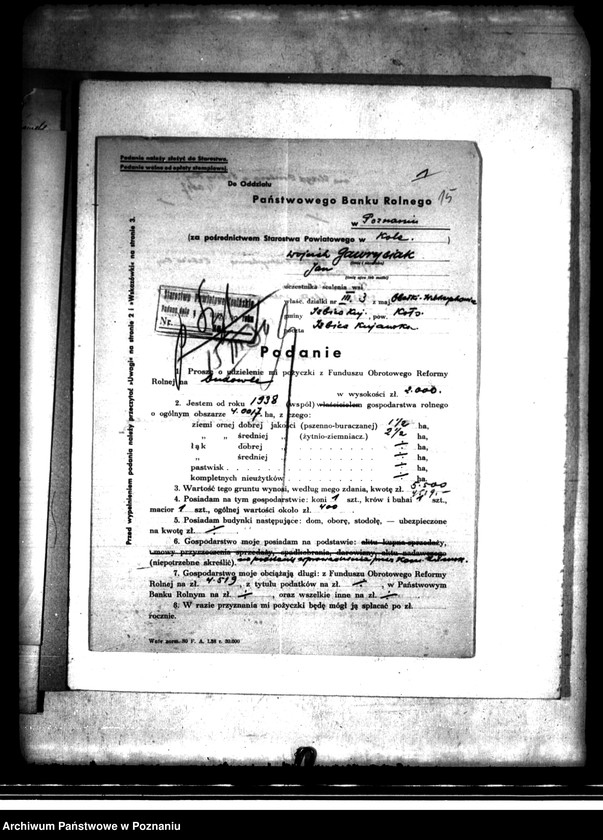 Podania należy złożyć do Starostwa.
Podania wolne od opłaty stemplowej.
1
De Oddziału
Państwowego Banku Rolnego
15
w Poznaniu
(za pośrednictwem Starostwa Powiatowego w Kole.)
Wojciech Gawrysiak
Jan
uczestnika scalenia wsi
właśc. działki nr III. 3 z maj.
gminy Izbica Kuj., pow. Koło
poczta Izbica Kujawska
Starostwo Powiatowe Kolskie
Podano dnia
roku
Nr.
Podanie
1. Proszę o udzielenie mi pożyczki z Funduszu Obrotowego Reformy
Rolnej na budowle
w wysokości zł. 2.000.
2. Jestem od roku 1938 (współ) właścicielem gospodarstwa rolnego
o ogólnym obszarze 4.0017 ha, z czego:
ziemi ornej dobrej jakości (pszenno-buraczanej) 1 1/2 ha,
„ „ średniej „ (żytnio-ziemniacz.) 2 1/2 ha,
łąk dobrej „ ha,
„ średniej „ ha,
pastwisk ha,
kompletnych nieużytków ha,
3. Wartość tego gruntu wynosi, według mego zdania, kwotę zł. 5.000
4.519.-
4. Posiadam na tym gospodarstwie: koni 1 szt., krów i buhai 1 szt.,
macior 1 szt., ogólnej wartości około zł. 400
5. Posiadam budynki następujące: dom, oborę, stodołę, — ubezpieczone
na kwotę zł.
6. Gospodarstwo moje posiadam na podstawie: aktu kupna-sprzedaży,
umowy przyrzeczenia sprzedaży, spadkobrania, darowizny aktu nadawczego
(niepotrzebne skreślić). na podstawie wprowadzenia przez Kom. Ziemsk.
7. Gospodarstwo moje obciążają długi: z Funduszu Obrotowego Reformy
Rolnej na zł. 4.519, z tytułu podatków na zł. , w Państwowym
Banku Rolnym na zł. , oraz wszelkie inne na zł.
8. W razie przyznania mi pożyczki będę mógł ją spłacać po zł.
rocznie.
Wzór norm. 80 F. A. 1.38 r. 20.000
Przed wypełnieniem podania należy przeczytać «Uwagi» na stronie 2 i «Wskazówki» na stronie 3.
Archiwum Państwowe w Poznaniu